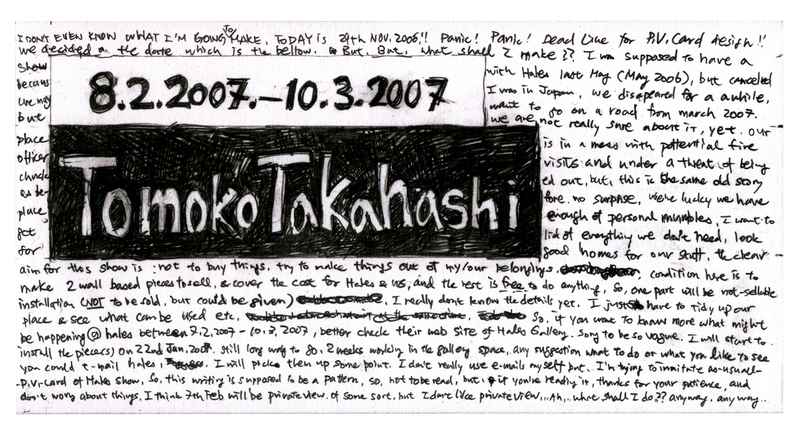 I DON'T EVEN KNOW WHAT I'M GOING TO MAKE, TODAY is 29th NOV. 2006!! Panic! Panic! Dead Line for P.V. Card design!!
we decided on the date which is the bellow. But, But, what shall I make?? I was supposed to have a
show with Hales last May (May 2006), but canceled
becaus I was in Japan, we disapeared for a awhile,
want to go on a road from march 2007.
but we are not really sure about it, yet. our
place is in a mess with potential fire
officer visits and under a threat of being
chuck ed out, but, this is the same old story
as be fore. no surprise. we're lucky we have
place, enough of personal
get lid of everything we don't need, look
for good homes for our stuff. the
8.2.2007.-10.3.2007
Tomoko Takahashi
aim for this show is : not to buy things, try to make things out of my/our belongings. condition here is to
make 2 wall based pieces to sell, & cover the cost for Hales & us, and the rest is free to do anything, so, one part will be not-sellable
installation (NOT to be sold, but could be given) I really don't know the details yet. I just have to tidy up our
place & see what can be used etc. so, if you want to know more what might
be happening @ hales between 8.2.2007 - 10.3.2007, better check their web site of Hales Gallery. Sorry to be so vague. I will start to
install the piece(s) on 22nd Jan. 2007. still long way to go, 2 weeks working in the gallery space, any suggestion what to do or what you like to see
you could e-mail hales, I will pick them up some point. I don't really use e-mails myself but. I'm trying to immitate as-usual-
P.V. card of Hales show, so, this writing is supposed to be a pattern, so, not to be read, but, if you're reading it, thanks for your patience, and
don't worry about things, I think 7th Feb will be private view of some sort. but I don't like private view...Ah... what shall I do?? anyway. any way..